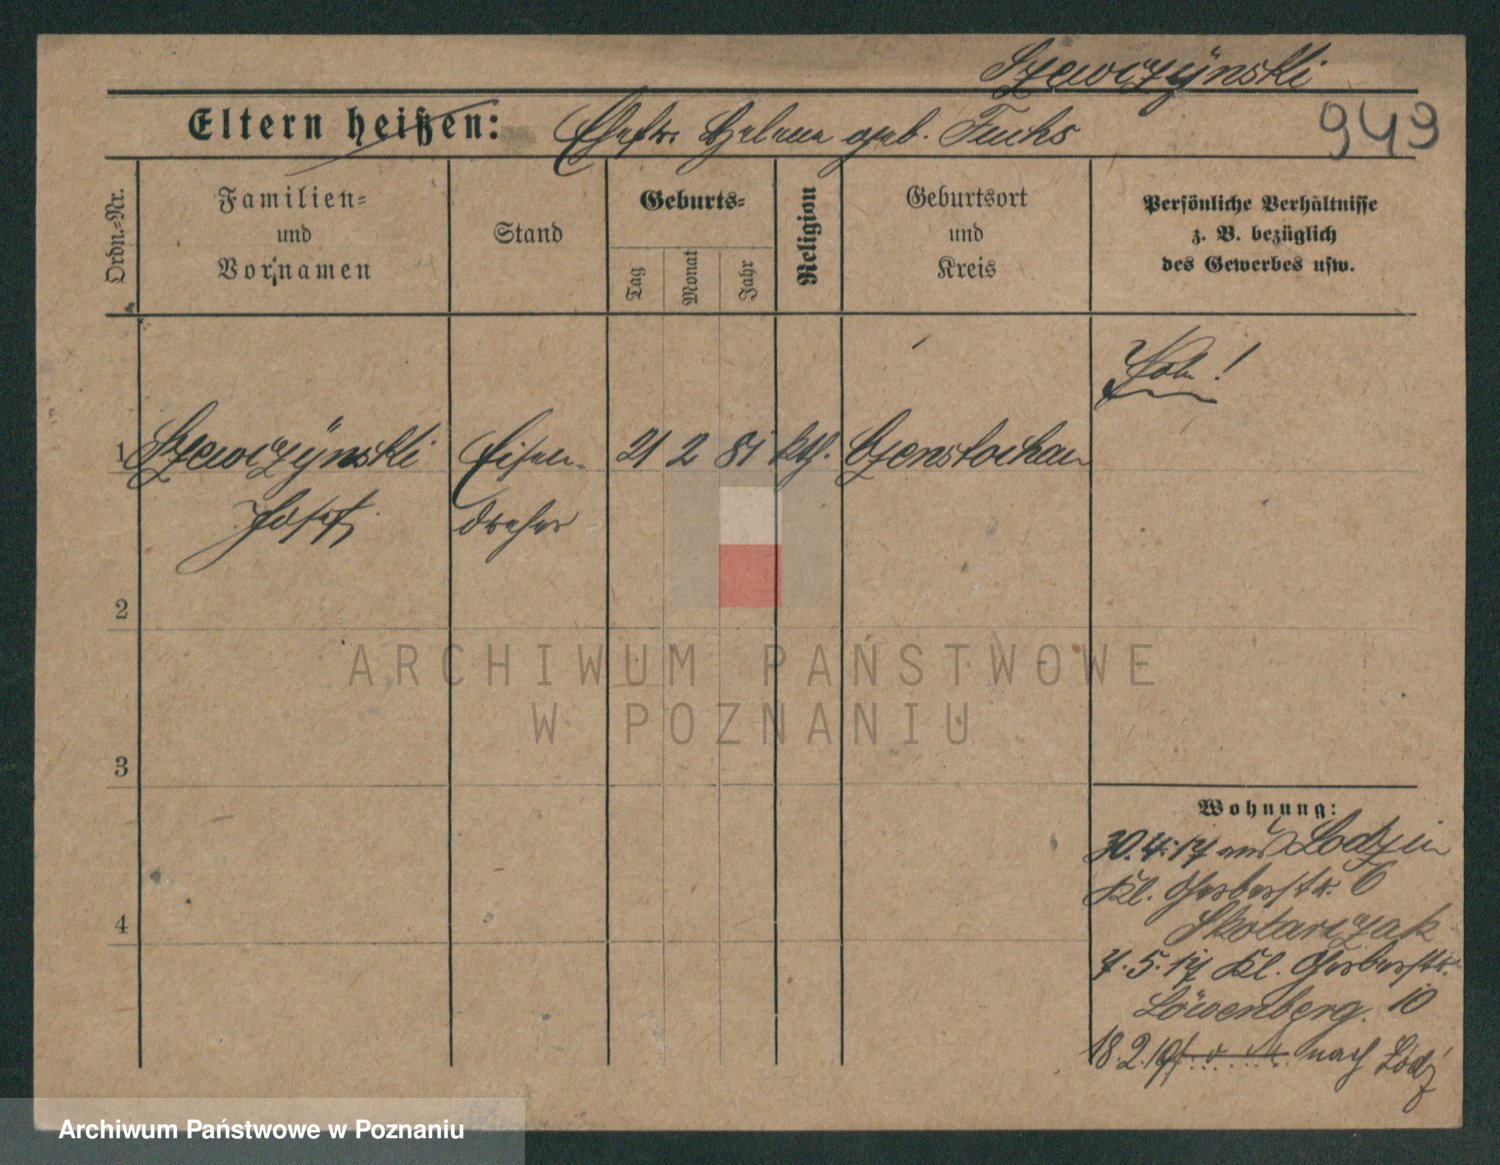 Szewczÿnski
Eltern heißen: Ehefr. Helene geb. Fuchs
949
Ordn.-Nr.
Familien-
und
Vornamen
Stand
Geburts-
Tag
Monat
Jahr
Religion
Geburtsort
und
Kreis
Persönliche Verhältnisse
z. B. bezüglich
des Gewerbes usw.
1 Szewczÿnski Eisen- 21 2 81 kth. Czenstochau
Josef dreher
2
ARCHIWUM PAŃSTWOWE
W POZNANIU
3
4
Wohnung:
30.4.17 aus Lodz in
Kl. Gerberstr. 6
Skotarczak
7.5.17 Kl. Gerberstr.
Löwenberg. 10
18.2.19 nach Lódź
Archiwum Państwowe w Poznaniu